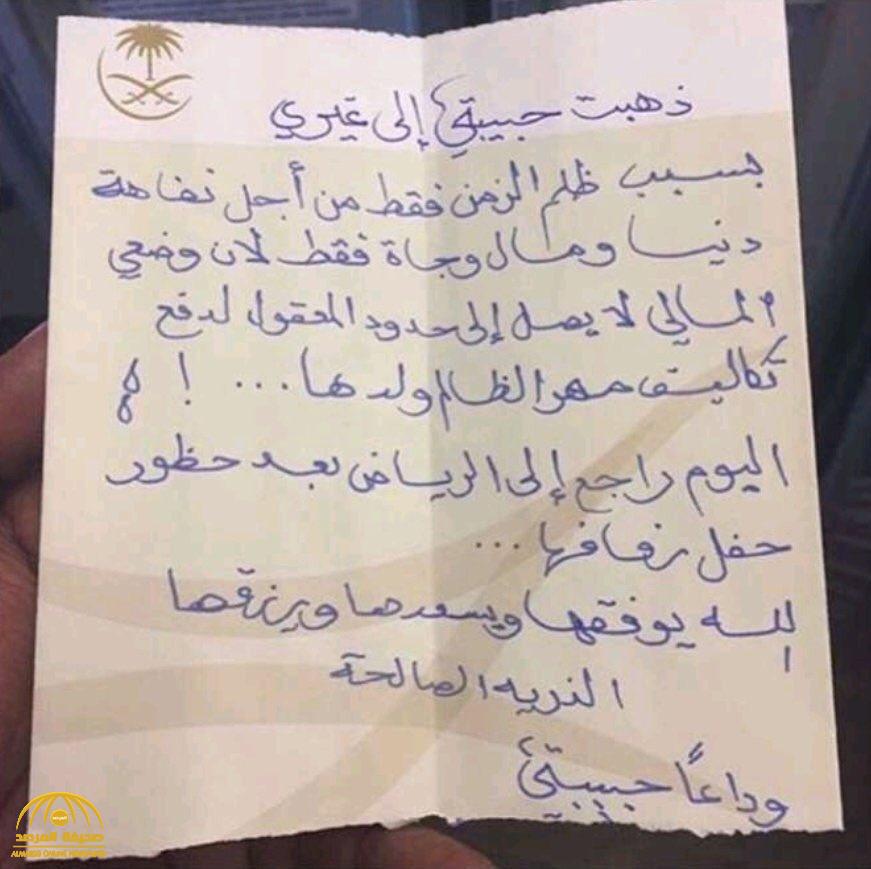 ذهبت حبيبتي إلى غيري
بسبب ظلم الزمن فقط من أجل تفاهة
دنيا ومال وجاة فقط لان وضعي
المالي لا يصل إلى حدود المعقول لدفع
تكاليف مهر الظالم ولدها... !
اليوم راجع إلى الرياض بعد حظور
حفل زفافها...
الله يوفقها ويسعدها ويرزقها
الذريه الصالحة
وداعاً حبيبتي
المرصد
صحيفة المرصد